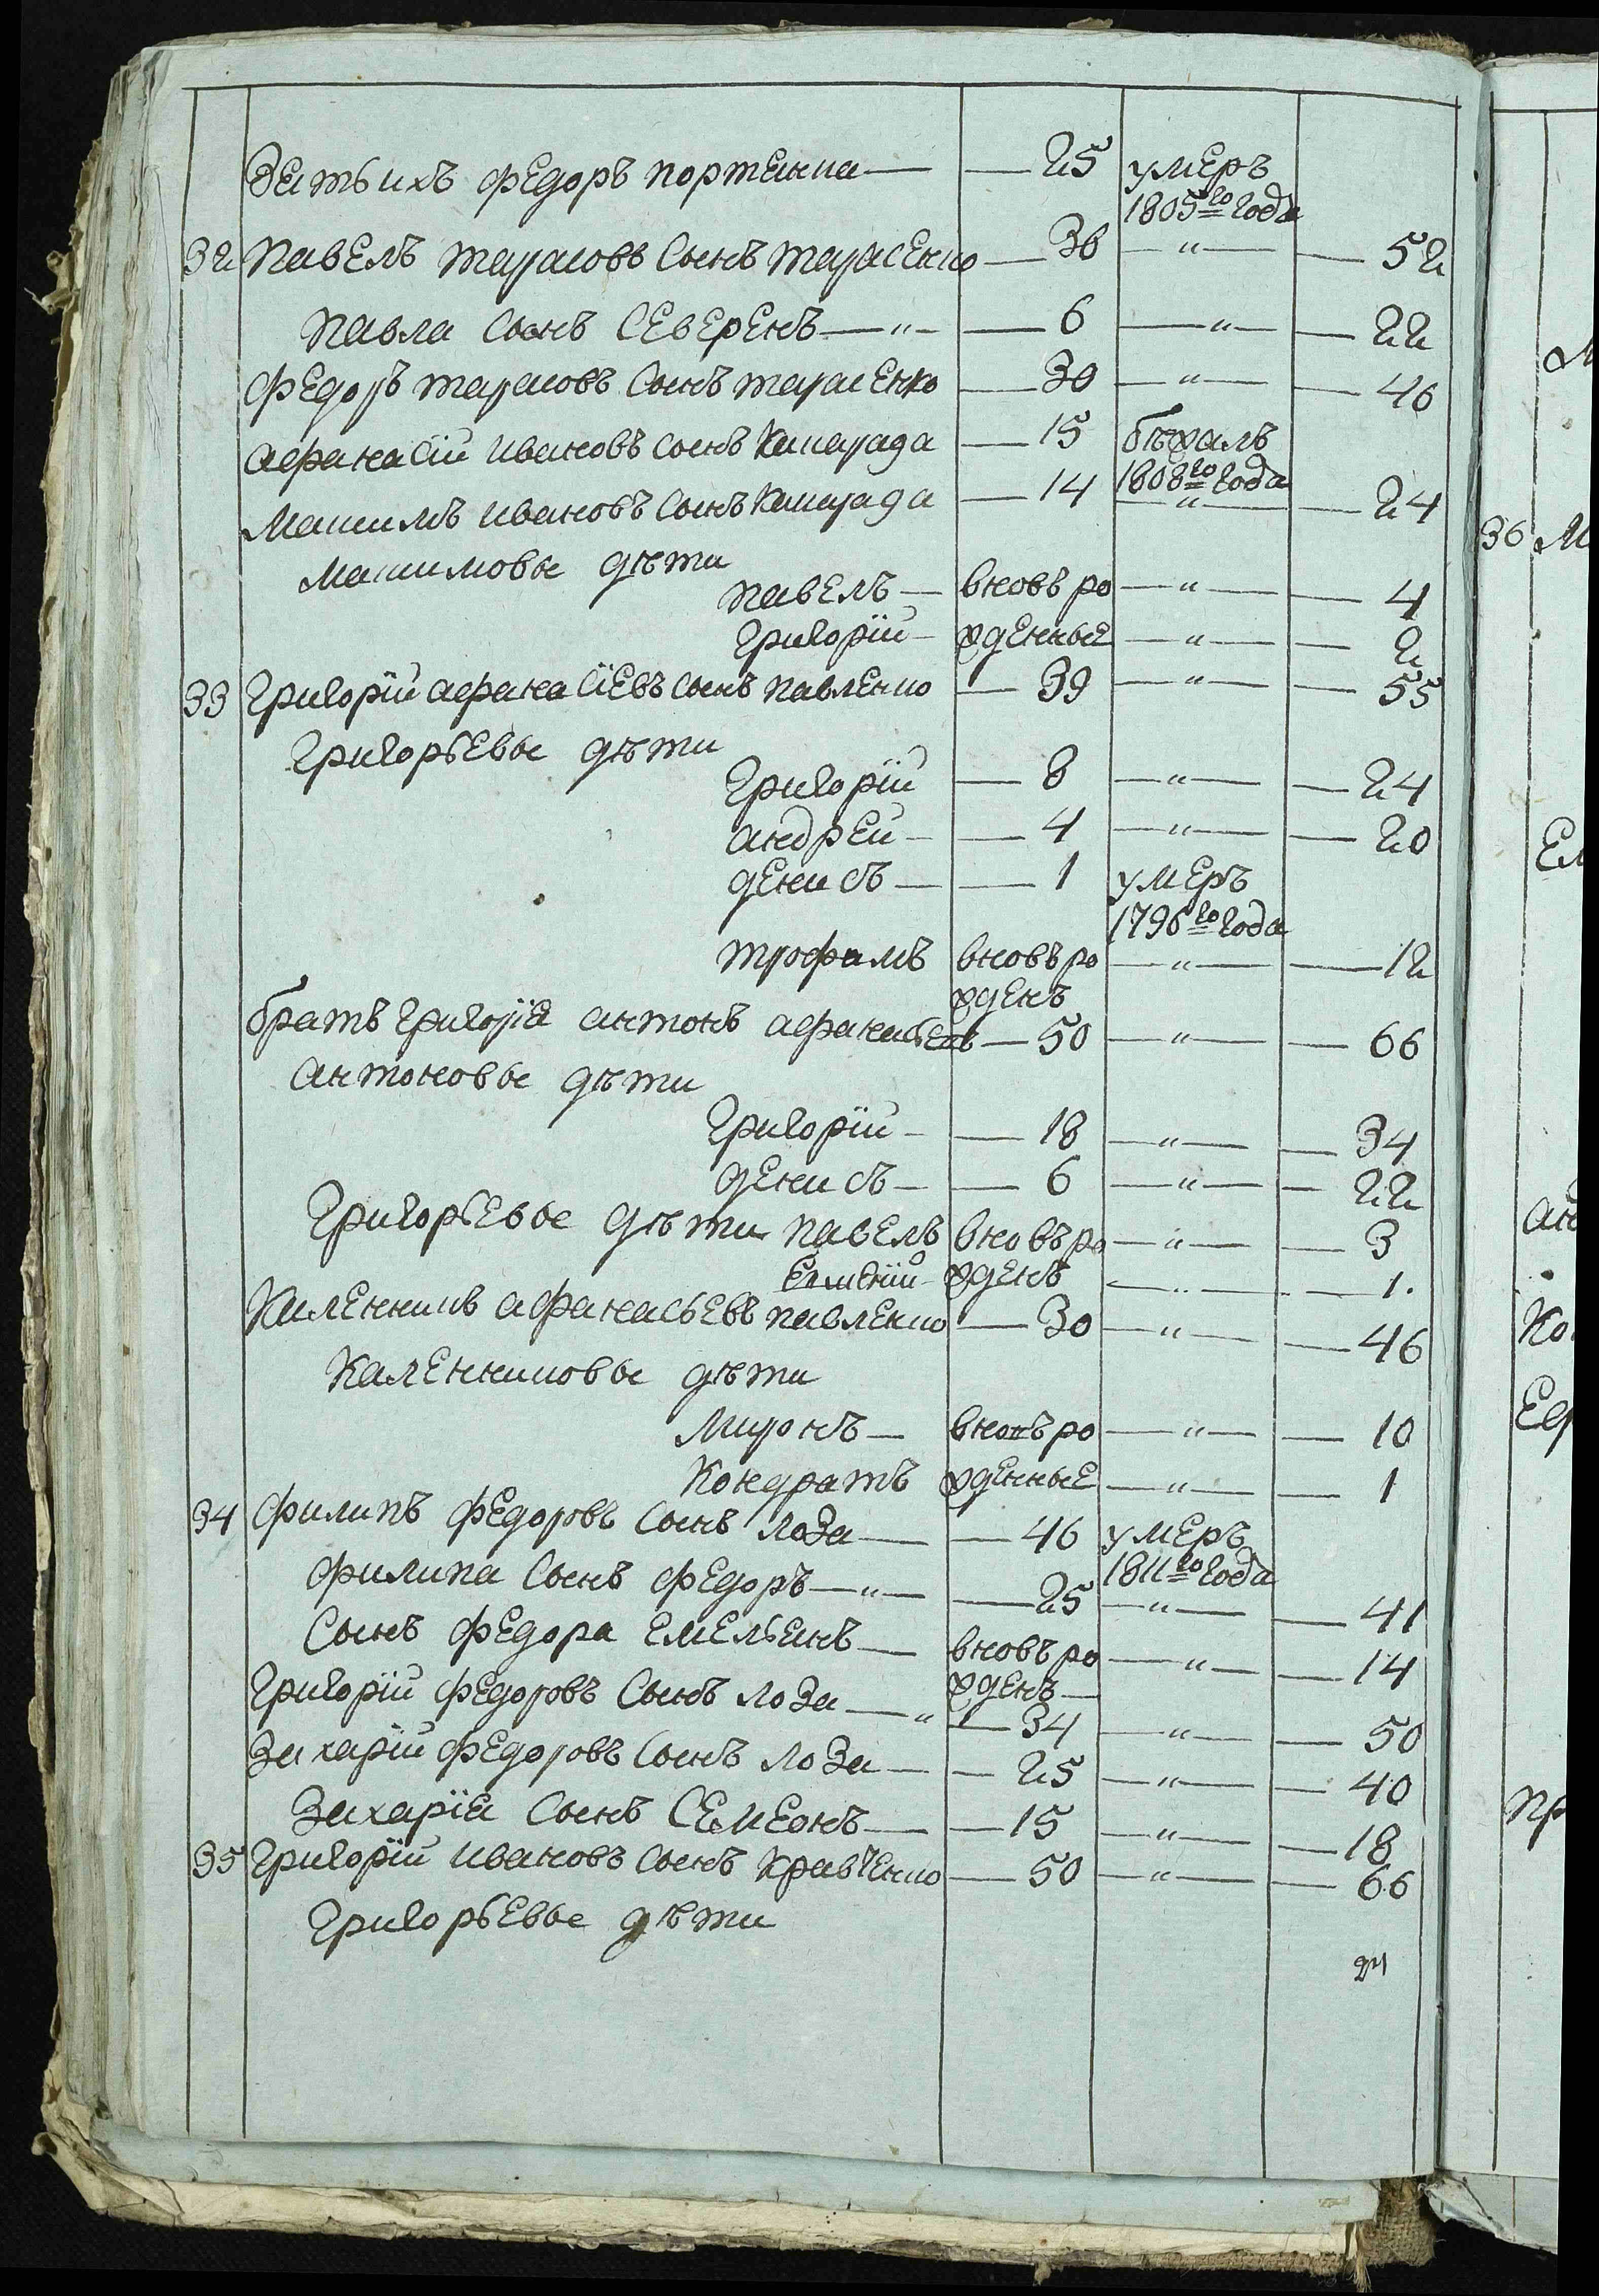 Зять ихъ Федоръ портянка — 25 умеръ
1805го года
32 Павелъ тарасовъ Сынъ тарасенко — 36 — " — 52
Павла Сынъ Северенъ — " — 6 — " — 22
Федоръ тарасовъ Сынъ тарасенко — 30 — " — 46
Афанасій ивановъ сынъ Камарада — 15 бѣжалъ
1808го года
Максимъ ивановъ Сынъ Камарада — 14 — " — 24
Максимовы дѣти
Павелъ — вновь ро — " — 4
Григорій — жденные — " — 2
33 Григорій афанасіевъ сынъ павленко — 39 — " — 55
Григорьевы дѣти
Григорій — 8 — " — 24
андрей — 4 — " — 20
денисъ — 1 умеръ
1796го года
трофимъ вновь ро — " — 12
жденъ
братъ григорія антонъ афанасьевъ — 50 — " — 66
Антоновы дѣти
Григорій — 18 — " — 34
денисъ — 6 — " — 22
Григорьевы дѣти павелъ вновь ро — " — 3
жденъ — " — 1.
Каленникъ афанасьевъ павленко — 30 — " — 46
Каленниковы дѣти
Миронъ — вновь ро — " — 10
Кондратъ жденные — " — 1
34 Филипъ Федоровъ Сынъ лоза — 46 умеръ
1811го года
Филипа Сынъ Федоръ — " — 25 — " — 41
Сынъ Федора Емельянъ — вновь ро — " — 14
жденъ —
Григорій Федоровъ Сынъ лоза — " — 34 — " — 50
Захарій Федоровъ Сынъ лоза — 25 — " — 40
Захарія Сынъ Семеонъ — 15 — " — 18
35 Григорій ивановъ сынъ кравченко — 50 — " — 66
Григорьевы дѣти
36